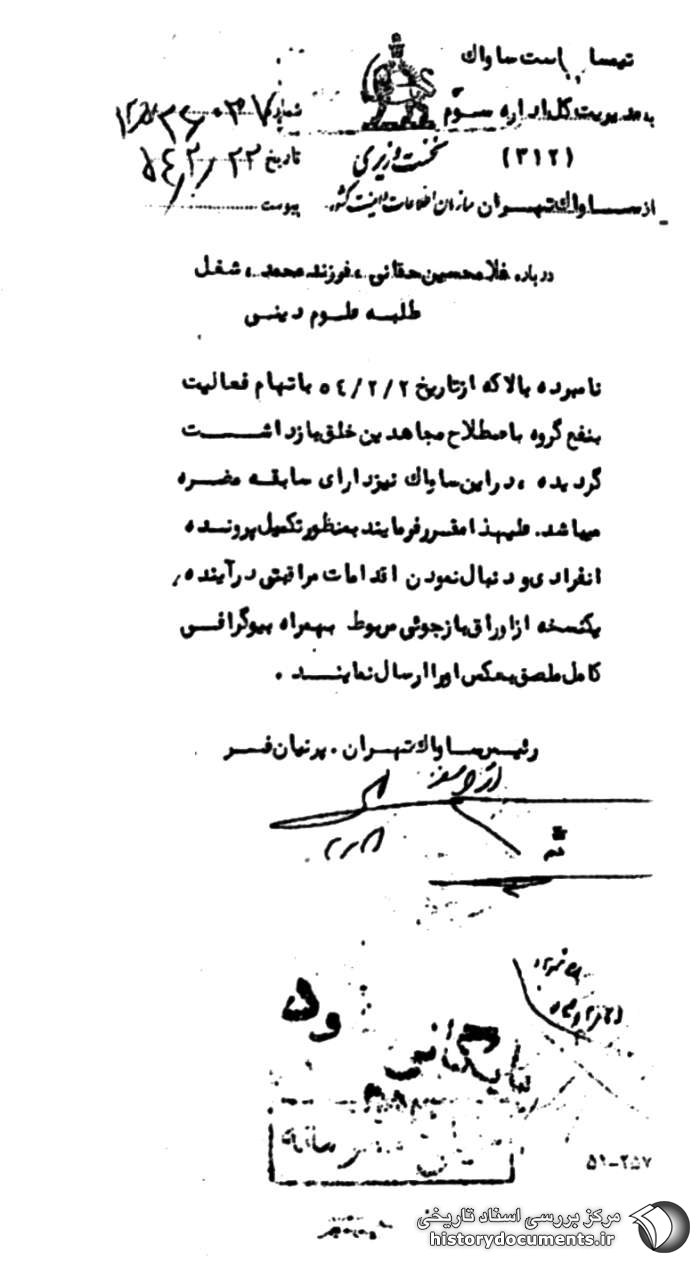 تیمسار ریاست ساواک
به مدیریت کل اداره سوم
(۳۱۲)
از ساواک تهران
نخست وزیری
سازمان اطلاعات و امنیت کشور
شماره
تاریخ ۵۴/۲/۲۳
پیوست
درباره غلامحسین حقانی ، فرزند محمد ، شغل
طلبه علوم دینی
نامبرده بالا که از تاریخ ۵۴/۲/۲ باتهام فعالیت
بنفع گروه باصطلاح مجاهدین خلق بازداشت
گردیده ، در این ساواک نیز دارای سابقه مضره
میباشد. علیهذا مقرر فرمایند بمنظور تکمیل پرونده
انفرادی و دنبال نمودن اقدامات مراقبتی در آینده ،
یکنسخه از اوراق بازجوئی مربوط بهمراه بیوگرافی
کامل ملصق بعکس او را ارسال نمایند .
رئیس ساواک تهران . پرنیان فر
بایگانی
۵۱-۲۵۷
مرکز بررسی اسناد تاریخی
historydocuments.ir